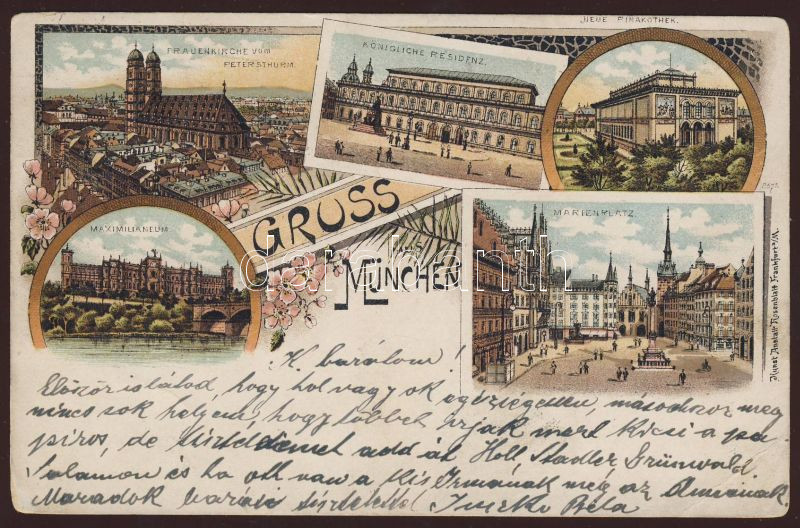 NEUE PINAKOTHEK.
FRAUENKIRCHE VOM
PETERSTHURM.
KÖNIGLICHE RESIDENZ.
MAXIMILIANEUM
GRUSS
AUS
MÜNCHEN
MARIENPLATZ.
Kunst Anstalt Rosenblatt Frankfurt a/M.
darabanth
K. barátom!
Először is látod, hogy hol vagyok egészségesen, másodszor meg
nincs sok helyem, hogy többet írjak mert kicsi a pa-
piros, de üdvözletemet add át Holl, Stadler, Grünwald
Salamon és ha ott van a kis Irmának meg az
Maradok baráti üdvözlettel Béla